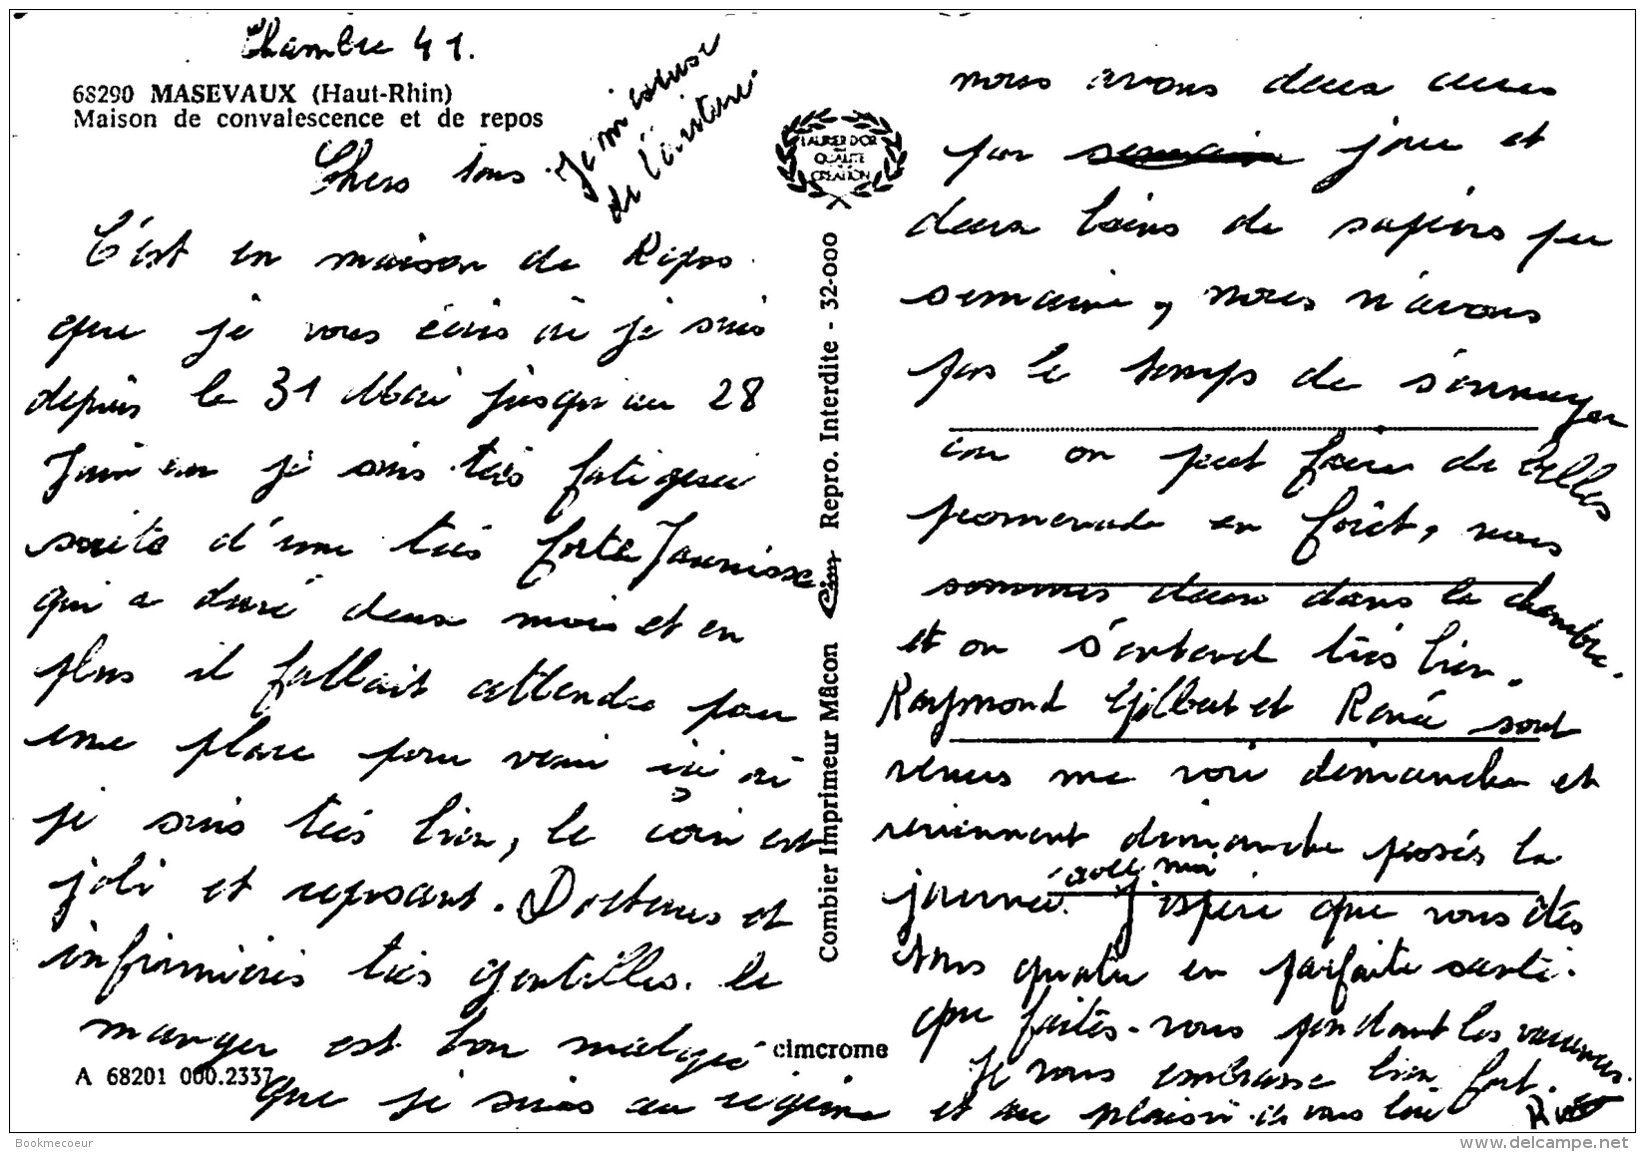 Chambre 41.
68290 MASEVAUX (Haut-Rhin)
Maison de convalescence et de repos
Je m'excuse
de l'ériture
Chers tous
C'est en maison de Repos
que je vous écris où je suis
depuis le 31 Mai jusqu'au 28
Juin car je suis très fatiguée
suite d'une très forte Jaunisse
qui a duré deux mois et en
plus il fallait attendre pour
une place pour venir ici où
je suis très bien, le coin est
joli et reposant. Docteurs et
infirmières très gentilles. le
manger est bon malgré
que je suis au régime
A 68201 000.2337
cimcrome
LAURIER D'OR
QUALITE
CREATION
Combier Imprimeur Mâcon Cim Repro. Interdite - 32-000
nous avons deux cures
par semaine jour et
deux bains de sapins par
semaine, nous n'avons
pas le temps de s'ennuyer
car on peut faire de belles
promenade en forêt, nous
sommes deux dans la chambre
et on s'entend très bien.
Raymond Gilbert et René sont
venus me voir dimanche et
reviennent dimanche passés la
journée avec moi. J'espère que vous êtes
tous quatre en parfaite santé.
que faites-vous pendant les vacances.
Je vous embrasse bien fort.
et au plaisir de vous lire
Bookmecoeur
www.delcampe.net